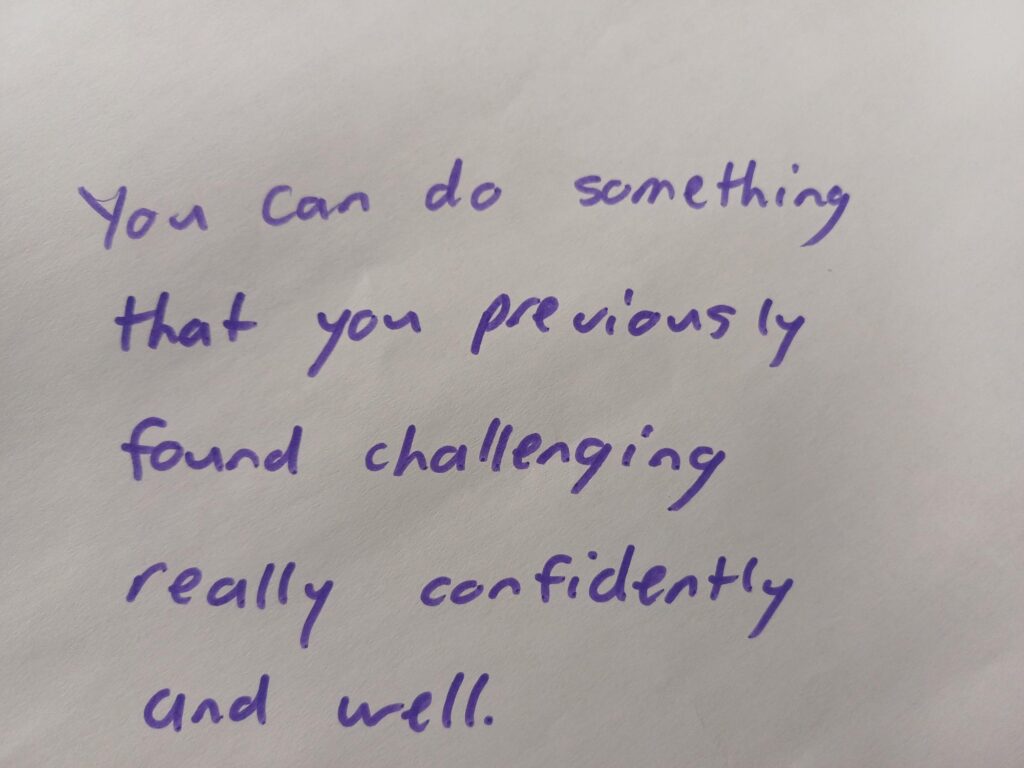 You can do something
that you previously
found challenging
really confidently
and well.